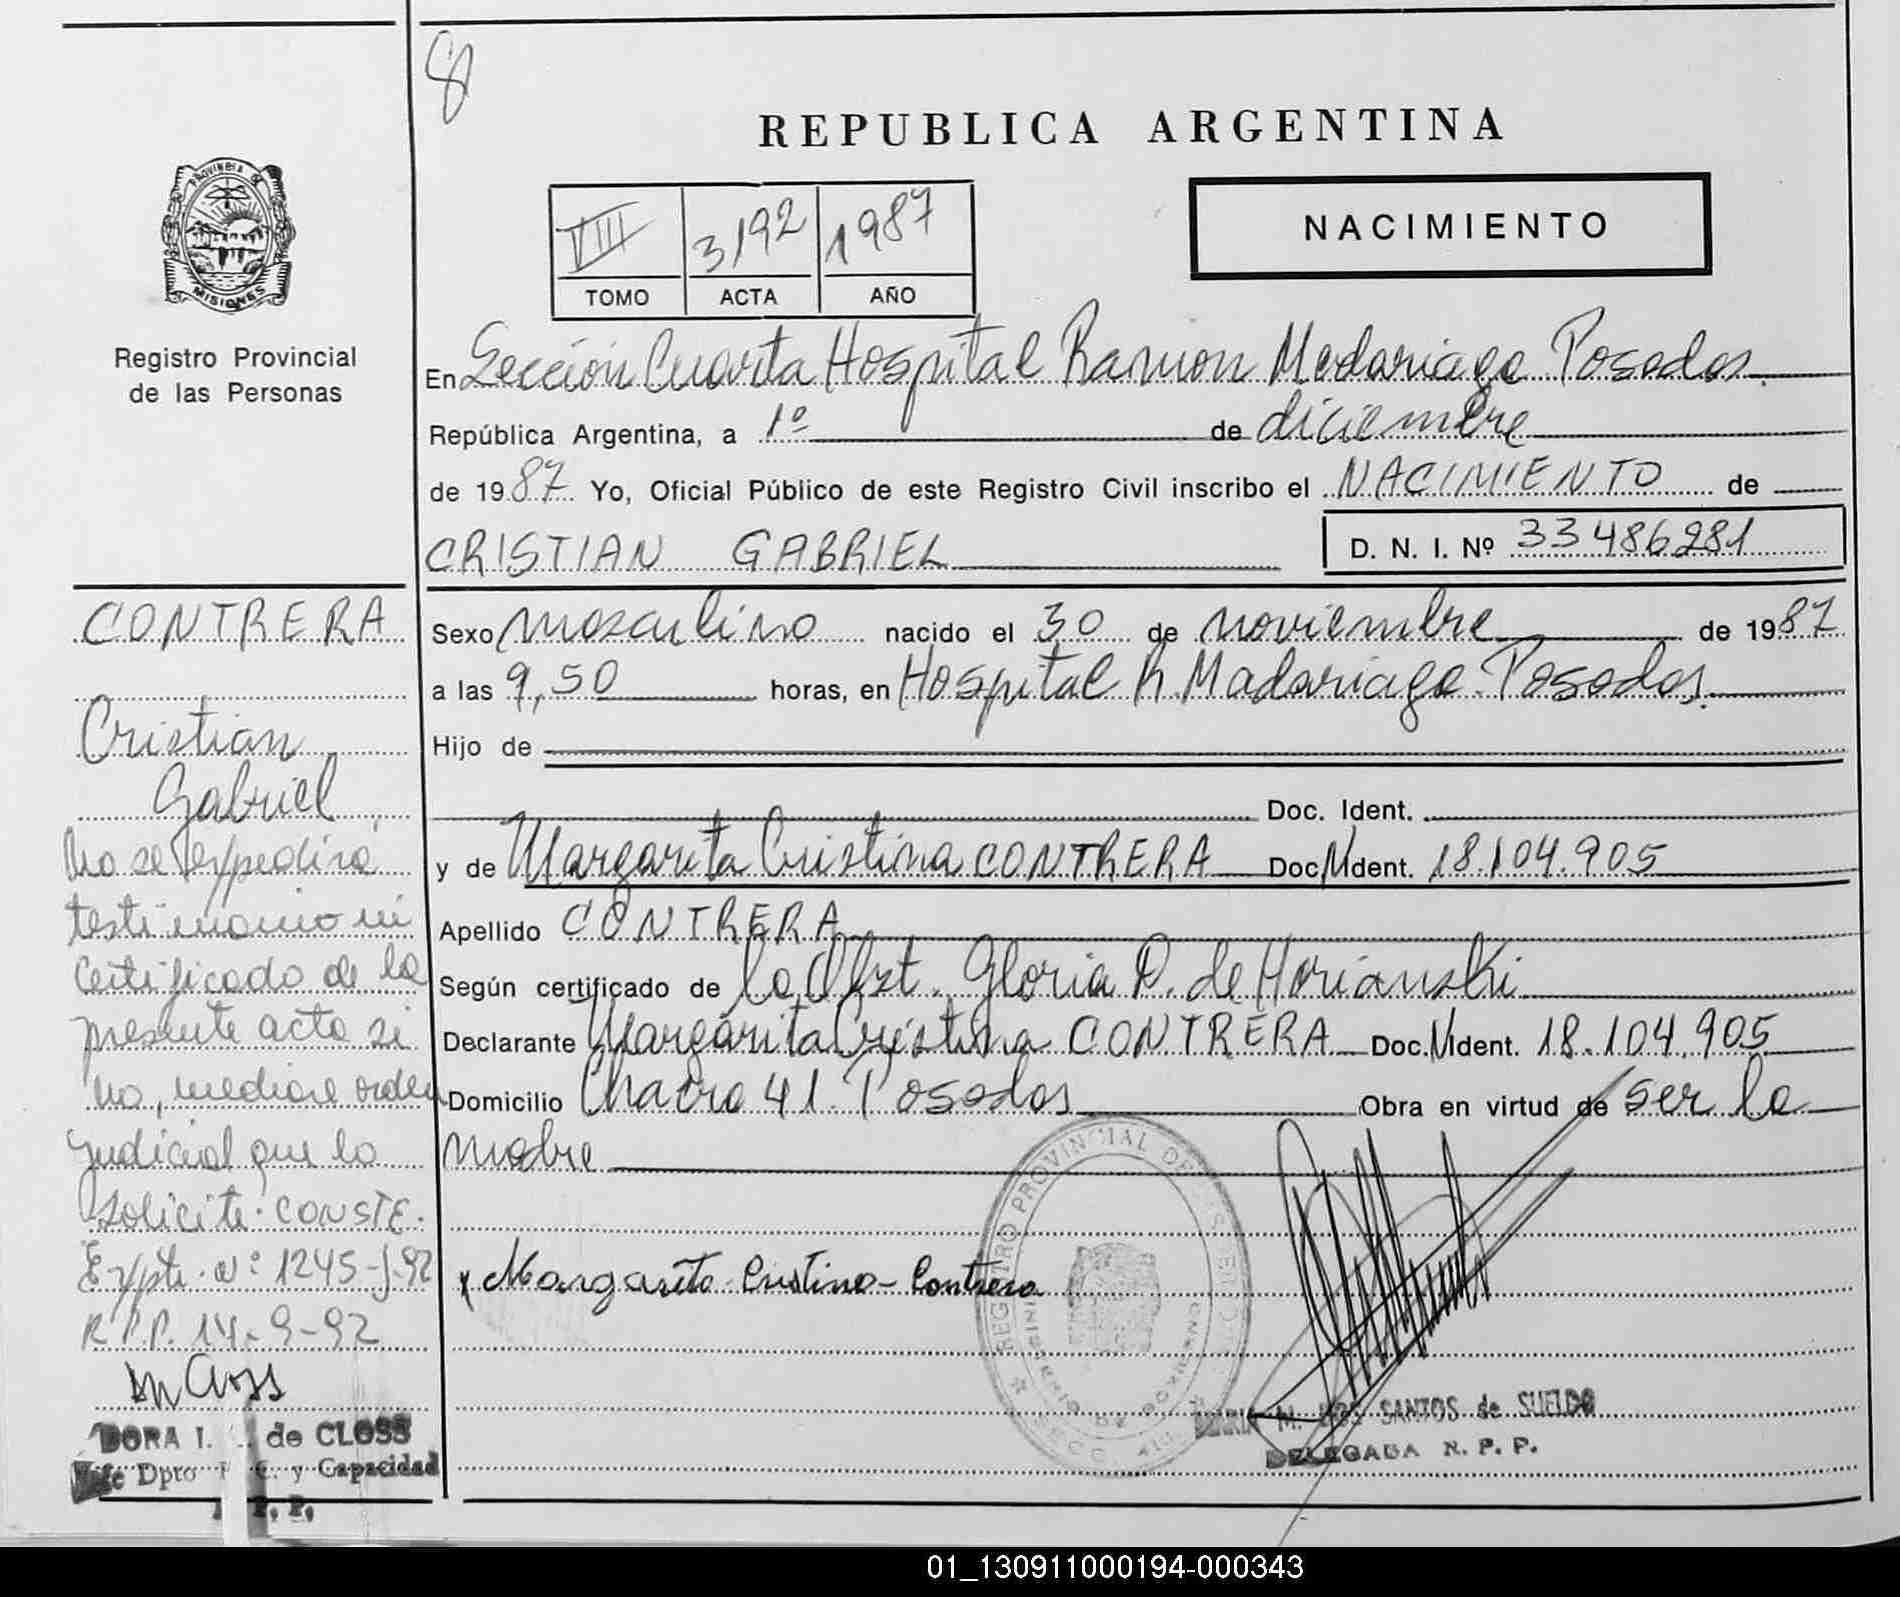 8
REPUBLICA ARGENTINA
PROVINCIA DE
MISIONES
VIII 3192 1987
TOMO ACTA AÑO
NACIMIENTO
Registro Provincial
de las Personas
En Sección Cuarta Hospital Ramon Madariaga Posadas
República Argentina, a 1º de diciembre
de 1987 Yo, Oficial Público de este Registro Civil inscribo el NACIMIENTO de
CRISTIAN GABRIEL D. N. I. Nº 33486281
Sexo masculino nacido el 30 de noviembre de 1987
a las 9,50 horas, en Hospital R. Madariaga. Posadas.
Hijo de
Doc. Ident.
y de Margarita Cristina CONTRERA Doc. Ident. 18.104.905
Apellido CONTRERA
Según certificado de la Obst. Gloria de
Declarante Margarita Cristina CONTRERA Doc. Ident. 18.104.905
Domicilio Chacra 41. Posadas Obra en virtud de ser la
madre
Margarita Cristina Contrera
REGISTRO PROVINCIAL DE
SANTOS de SUELDO
DELEGADA R. P. P.
CONTRERA
Cristian
Gabriel
No se expedirá
testimonio ni
certificado de la
presente acta si
no, mediare orden
judicial que lo
solicite. CONSTE.
Expte. Nº 1245-J-92
R.P.P. 14-9-92
DORA I. de CLOSS
Jefe Dpto y Capacidad
P. P.
01_130911000194-000343